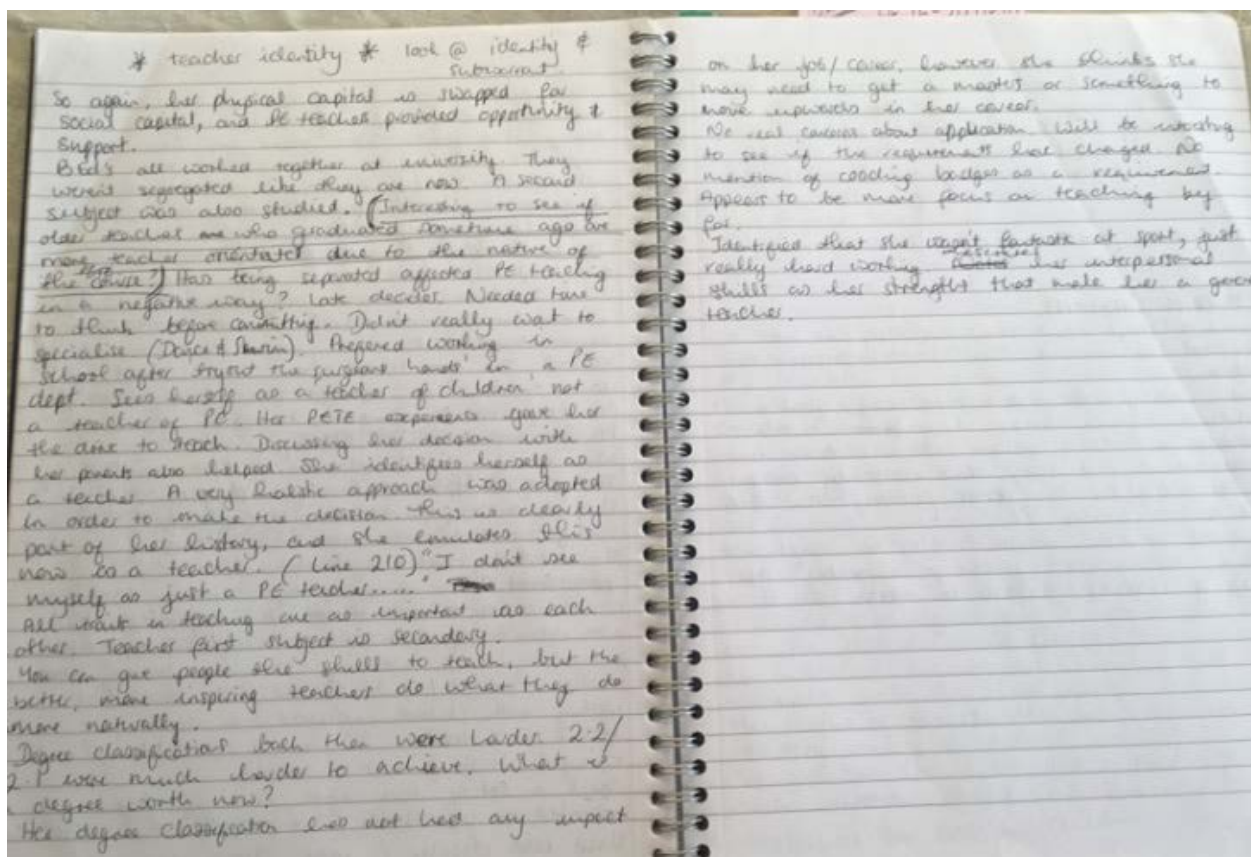 * teacher identity * look @ identity &
So again, her physical capital is swapped for
social capital, and PE teacher provided opportunity &
support.
BEd's all worked together at university. They
weren't segregated like they are now. A second
subject was also studied. (Interesting to see if
older teachers are who graduated sometime ago are
more teacher orientated due to the nature of
the course?) Has being separated affected PE teaching
in a negative way? Late decider. Needed time
to think before committing. Didn't really want to
specialise (Dance & Swim). Prefered working in
school after in a PE
dept. Sees herself as a teacher of children not
a teacher of PE. Her PETE experiences gave her
the drive to teach. Discussing her decision with
her parents also helped. She identifies herself as
a teacher. A very holistic approach was adopted
in order to make the decision. This is clearly
part of her history, and she emulates this
now as a teacher. (Line 210) "I don't see
myself as just a PE teacher....."
All in teaching are as important as each
other. Teacher first subject is secondary.
You can give people the skills to teach, but the
better, more inspiring teachers do what they do
more naturally.
Degree classifications back then were harder 2.2/
2.1 were much harder to achieve. What is
degree worth now?
Her degree classification has not had any impact
on her job/career, however she thinks she
may need to get a masters or something to
move upwards in her career.
No real about application. Will be interesting
to see if the requirements has changed. No
mention of coaching badges as a requirement.
Appears to be more focus on teaching by
far.
Identified that she wasn't fantastic at sport, just
really hard working her interpersonal
skills as her strengths that make her a good
teacher.